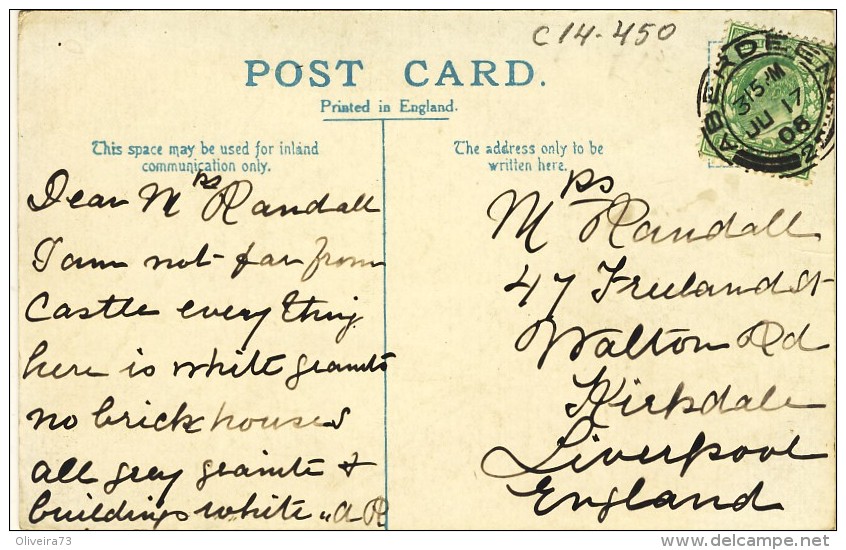 C14-450
POST CARD.
Printed in England.
This space may be used for inland
communication only.
The address only to be
written here.
ABERDEEN
3 15 PM
JU 17
08
2
Dear Mrs Randall
I am not far from
Castle everything
here is white granite
no brick houses
all grey granite &
buildings white "A R
Mrs Randall
47 Freeland St
Walton Rd
Kirkdale
Liverpool
England
Oliveira73
delcampe.net